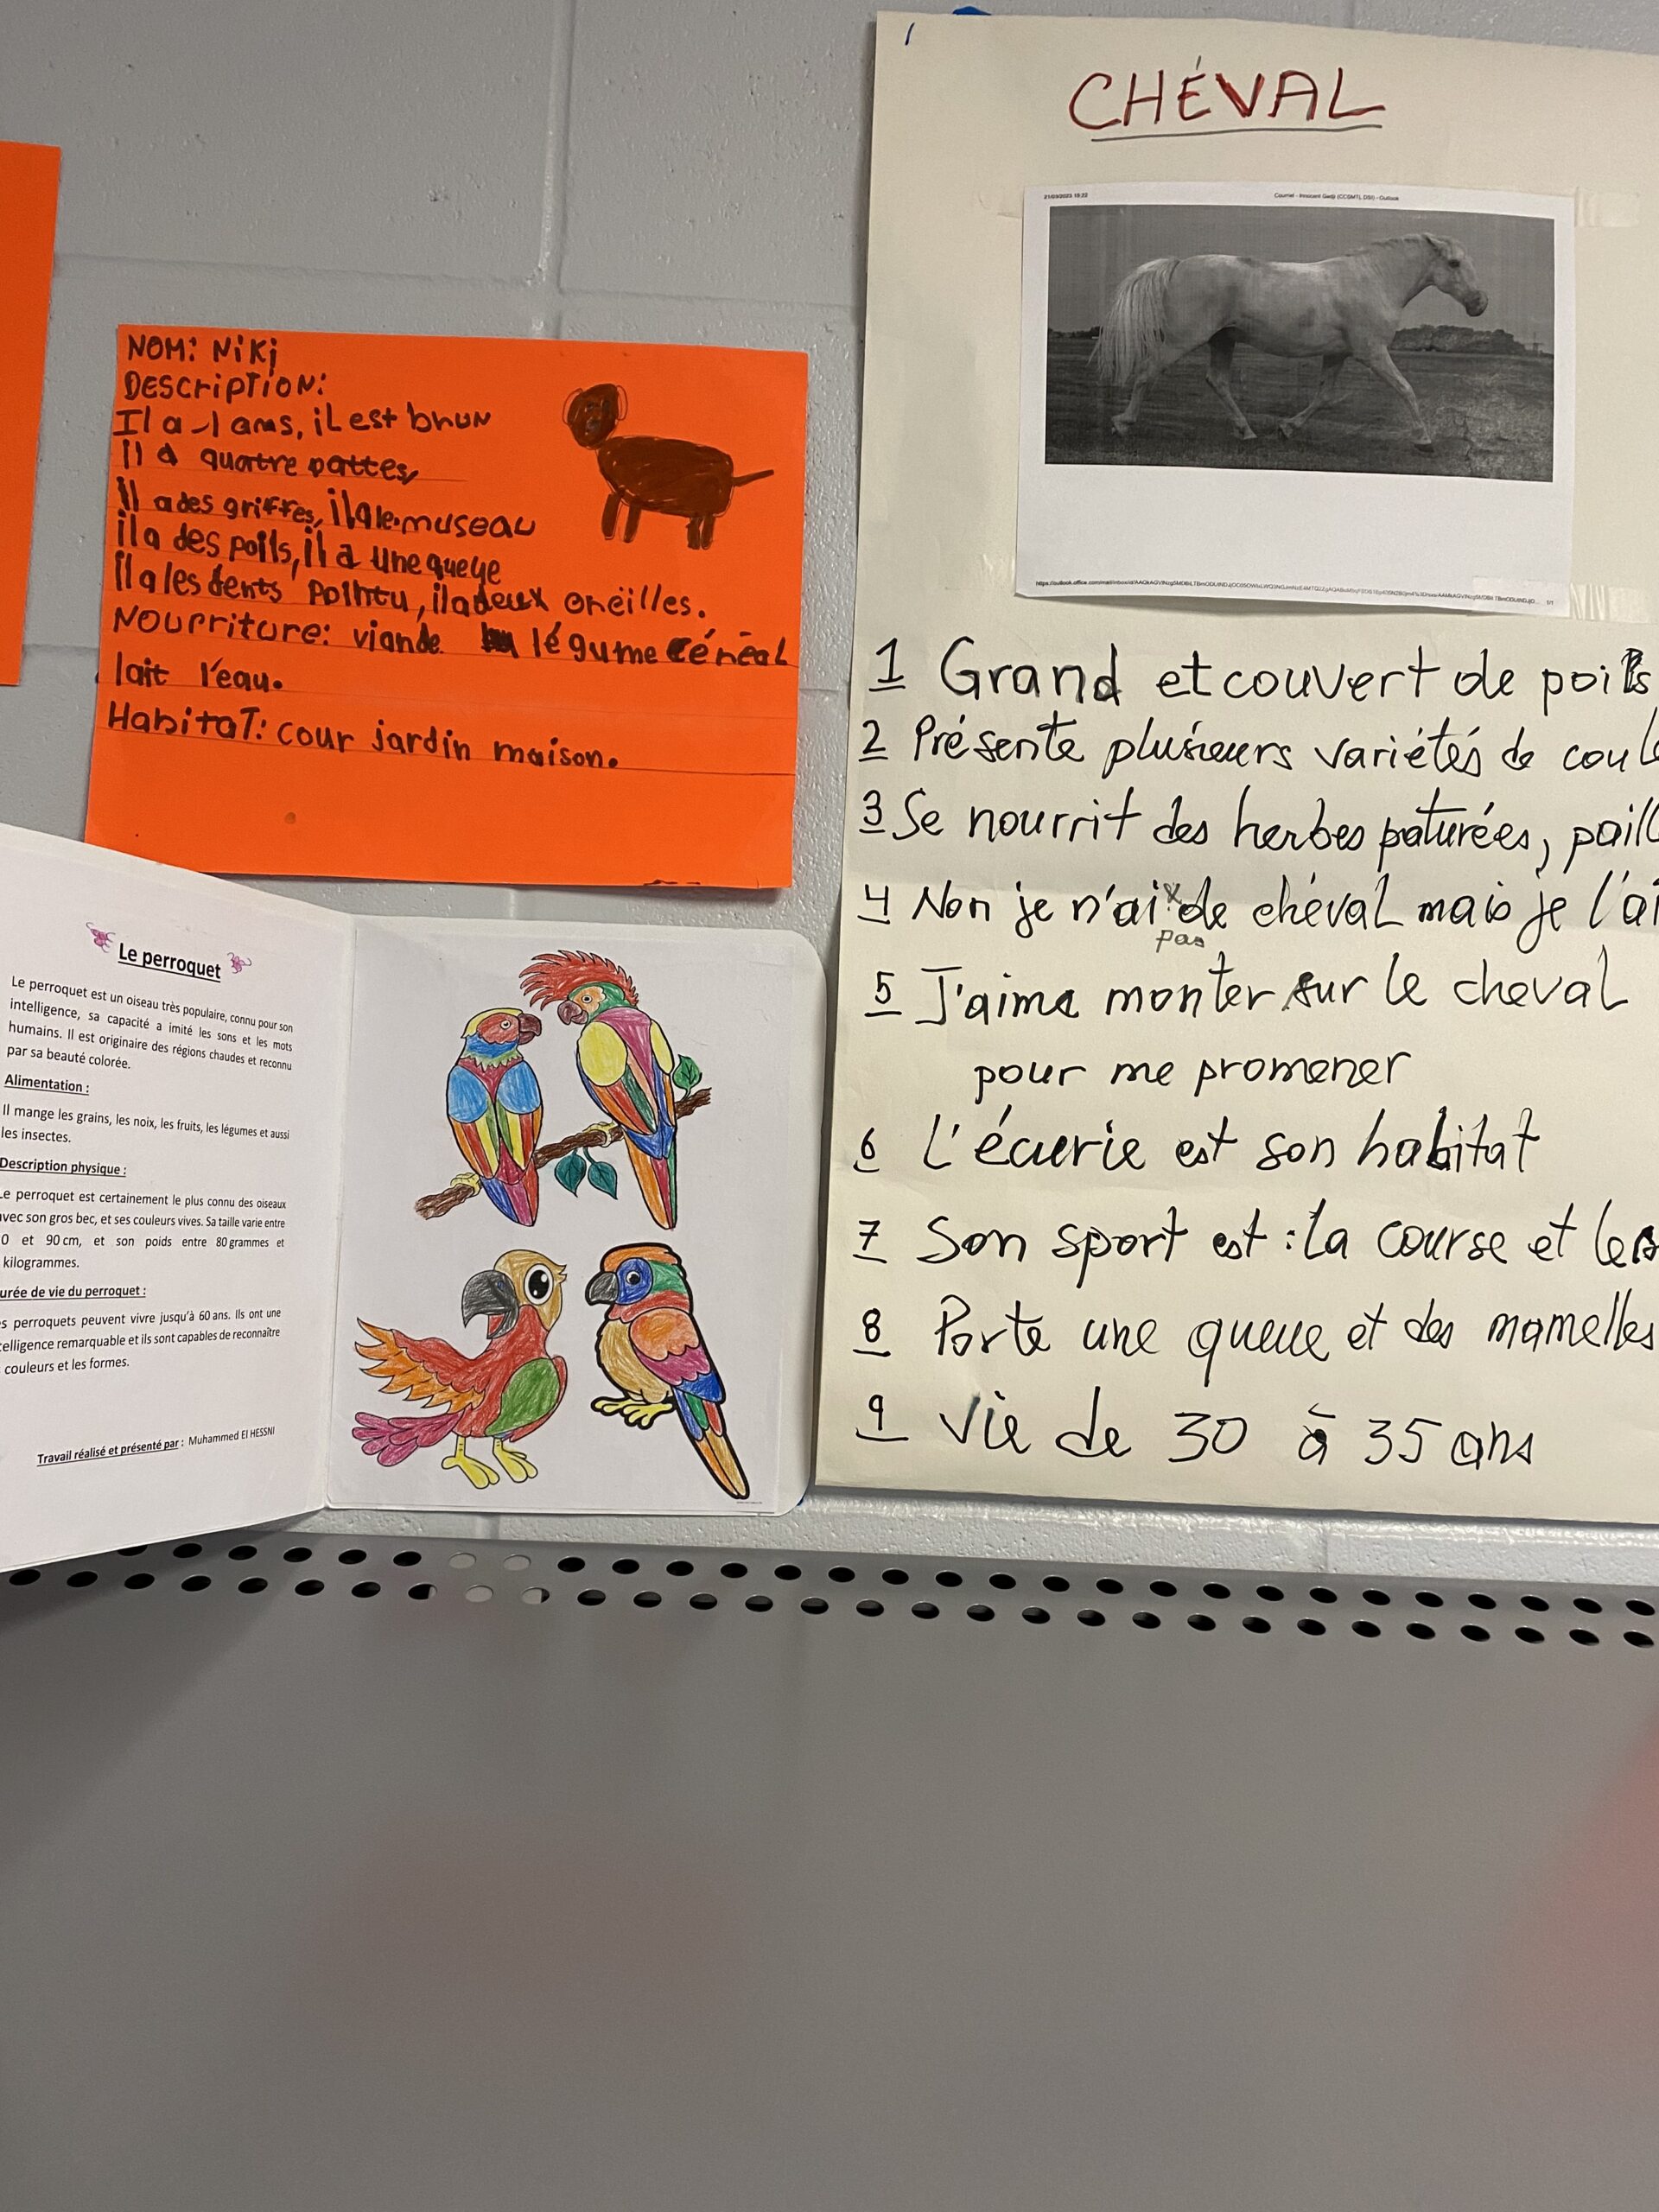 NOM: Niki
DEScripTION:
Il a 1 ans, iL est brun
il a quatre pattes,
il a des griffes, il a le museau
il a des poils, il a une queue
il a les dents pointu, il a deux oreilles.
Nourriture: viande légume céréal
lait l'eau.
HabitaT: cour jardin maison.
Le perroquet
Le perroquet est un oiseau très populaire, connu pour son
intelligence, sa capacité a imité les sons et les mots
humains. Il est originaire des régions chaudes et reconnu
par sa beauté colorée.
Alimentation :
Il mange les grains, les noix, les fruits, les légumes et aussi
les insectes.
Description physique :
Le perroquet est certainement le plus connu des oiseaux
avec son gros bec, et ses couleurs vives. Sa taille varie entre
0 et 90 cm, et son poids entre 80 grammes et
kilogrammes.
urée de vie du perroquet :
es perroquets peuvent vivre jusqu'à 60 ans. Ils ont une
telligence remarquable et ils sont capables de reconnaître
couleurs et les formes.
Travail réalisé et présenté par : Muhammed El HESSNI
CHÉVAL
21/09/2023 18:22
Courriel - Innocent Gedji (CCSMTL DSI) - Outlook
1/1
1 Grand et couvert de poils
2 Présente plusieurs variétés de coul
3 Se nourrit des herbes paturées, paill
4 Non je n'ai pas de chéval mais je l'ai
5 J'aime monter sur le cheval
pour me promener
6 L'écurie est son habitat
7 Son sport est : la course et les
8 Porte une queue et des mamelles
9 Vie de 30 à 35 ans